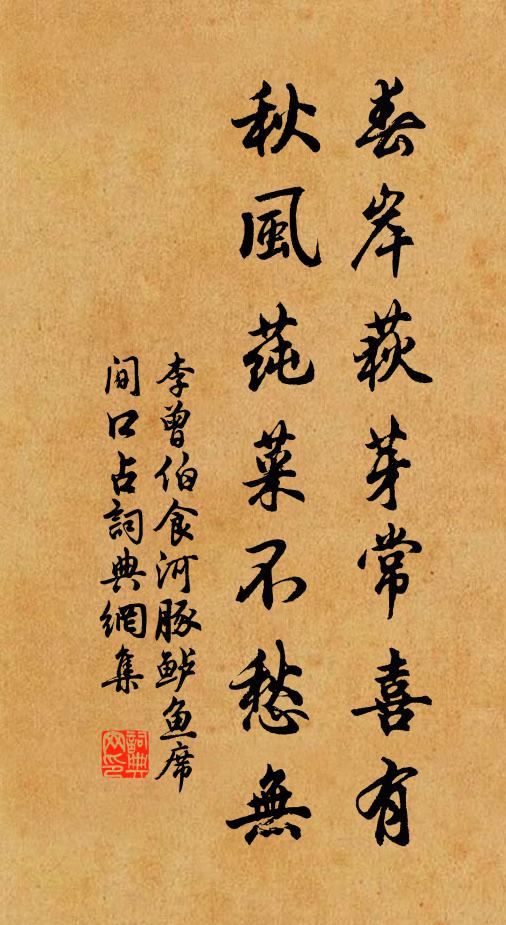 春岸荻芽常喜有
秋風莼菜不愁無
李曾伯食河豚鲈鱼席
间口占詞典網集
詞典
网印